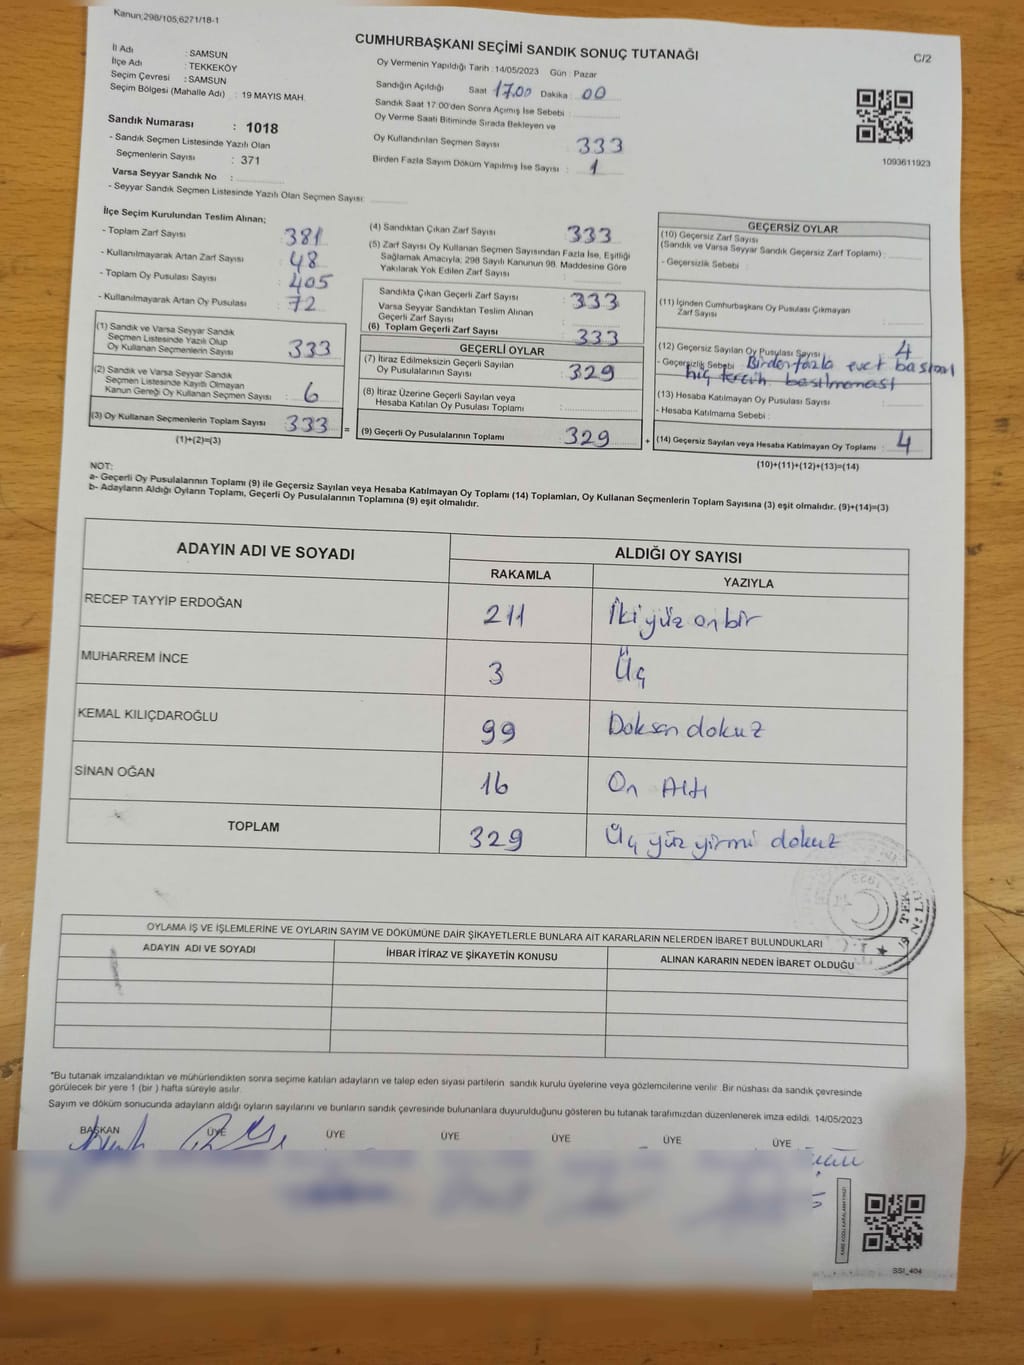 Kanun;298/105;6271/18-1
CUMHURBAŞKANI SEÇİMİ SANDIK SONUÇ TUTANAĞI
C/2
İl Adı : SAMSUN
İlçe Adı : TEKKEKÖY
Seçim Çevresi : SAMSUN
Seçim Bölgesi (Mahalle Adı) : 19 MAYIS MAH.
Sandık Numarası : 1018
- Sandık Seçmen Listesinde Yazılı Olan
Seçmenlerin Sayısı : 371
Varsa Seyyar Sandık No :
- Seyyar Sandık Seçmen Listesinde Yazılı Olan Seçmen Sayısı:
Oy Vermenin Yapıldığı Tarih : 14/05/2023 Gün : Pazar
Sandığın Açıldığı Saat 17.00 Dakika : 00
Sandık Saat 17:00'den Sonra Açımış İse Sebebi :
Oy Verme Saati Bitiminde Sırada Bekleyen ve
Oy Kullandırılan Seçmen Sayısı 333
Birden Fazla Sayım Döküm Yapılmış İse Sayısı : 1
1093611923
İlçe Seçim Kurulundan Teslim Alınan;
- Toplam Zarf Sayısı : 381
- Kullanılmayarak Artan Zarf Sayısı : 48
- Toplam Oy Pusulası Sayısı : 405
- Kullanılmayarak Artan Oy Pusulası : 72
(1) Sandık ve Varsa Seyyar Sandık
Seçmen Listesinde Yazılı Olup
Oy Kullanan Seçmenlerin Sayısı : 333
(2) Sandık ve Varsa Seyyar Sandık
Seçmen Listesinde Kayıtlı Olmayan
Kanun Gereği Oy Kullanan Seçmen Sayısı : 6
(3) Oy Kullanan Seçmenlerin Toplam Sayısı : 333
(1)+(2)=(3)
=
(4) Sandıktan Çıkan Zarf Sayısı : 333
(5) Zarf Sayısı Oy Kullanan Seçmen Sayısından Fazla İse, Eşitliği
Sağlamak Amacıyla; 298 Sayılı Kanunun 98. Maddesine Göre
Yakılarak Yok Edilen Zarf Sayısı :
Sandıkta Çıkan Geçerli Zarf Sayısı : 333
Varsa Seyyar Sandıktan Teslim Alınan
Geçerli Zarf Sayısı :
(6) Toplam Geçerli Zarf Sayısı : 333
GEÇERLİ OYLAR
(7) İtiraz Edilmeksizin Geçerli Sayılan
Oy Pusulalarının Sayısı : 329
(8) İtiraz Üzerine Geçerli Sayılan veya
Hesaba Katılan Oy Pusulası Toplamı :
(9) Geçerli Oy Pusulalarının Toplamı : 329
+
GEÇERSİZ OYLAR
(10) Geçersiz Zarf Sayısı
(Sandık ve Varsa Seyyar Sandık Geçersiz Zarf Toplamı) :
- Geçersizlik Sebebi :
(11) İçinden Cumhurbaşkanı Oy Pusulası Çıkmayan
Zarf Sayısı :
(12) Geçersiz Sayılan Oy Pusulası Sayısı : 4
- Geçersizlik Sebebi Birden fazla evet basılan
hiç tercih basılmaması
(13) Hesaba Katılmayan Oy Pusulası Sayısı :
- Hesaba Katılmama Sebebi :
(14) Geçersiz Sayılan veya Hesaba Katılmayan Oy Toplamı : 4
(10)+(11)+(12)+(13)=(14)
NOT:
a- Geçerli Oy Pusulalarının Toplamı (9) ile Geçersiz Sayılan veya Hesaba Katılmayan Oy Toplamı (14) Toplamları, Oy Kullanan Seçmenlerin Toplam Sayısına (3) eşit olmalıdır. (9)+(14)=(3)
b- Adayların Aldığı Oyların Toplamı, Geçerli Oy Pusulalarının Toplamına (9) eşit olmalıdır.
ADAYIN ADI VE SOYADI
ALDIĞI OY SAYISI
RAKAMLA YAZIYLA
RECEP TAYYİP ERDOĞAN 211 İki yüz on bir
MUHARREM İNCE 3 Üç
KEMAL KILIÇDAROĞLU 99 Doksan dokuz
SİNAN OĞAN 16 On Altı
TOPLAM 329 Üç yüz yirmi dokuz
OYLAMA İŞ VE İŞLEMLERİNE VE OYLARIN SAYIM VE DÖKÜMÜNE DAİR ŞİKAYETLERLE BUNLARA AİT KARARLARIN NELERDEN İBARET BULUNDUKLARI
ADAYIN ADI VE SOYADI İHBAR İTİRAZ VE ŞİKAYETİN KONUSU ALINAN KARARIN NEDEN İBARET OLDUĞU
*Bu tutanak imzalandıktan ve mühürlendikten sonra seçime katılan adayların ve talep eden siyasi partilerin sandık kurulu üyelerine veya gözlemcilerine verilir. Bir nüshası da sandık çevresinde
görülecek bir yere 1 (bir) hafta süreyle asılır.
Sayım ve döküm sonucunda adayların aldığı oyların sayılarını ve bunların sandık çevresinde bulunanlara duyurulduğunu gösteren bu tutanak tarafımızdan düzenlenerek imza edildi. 14/05/2023
BAŞKAN ÜYE ÜYE ÜYE ÜYE ÜYE ÜYE
KARE KODU KARALAMAYINIZ!
SSI_404